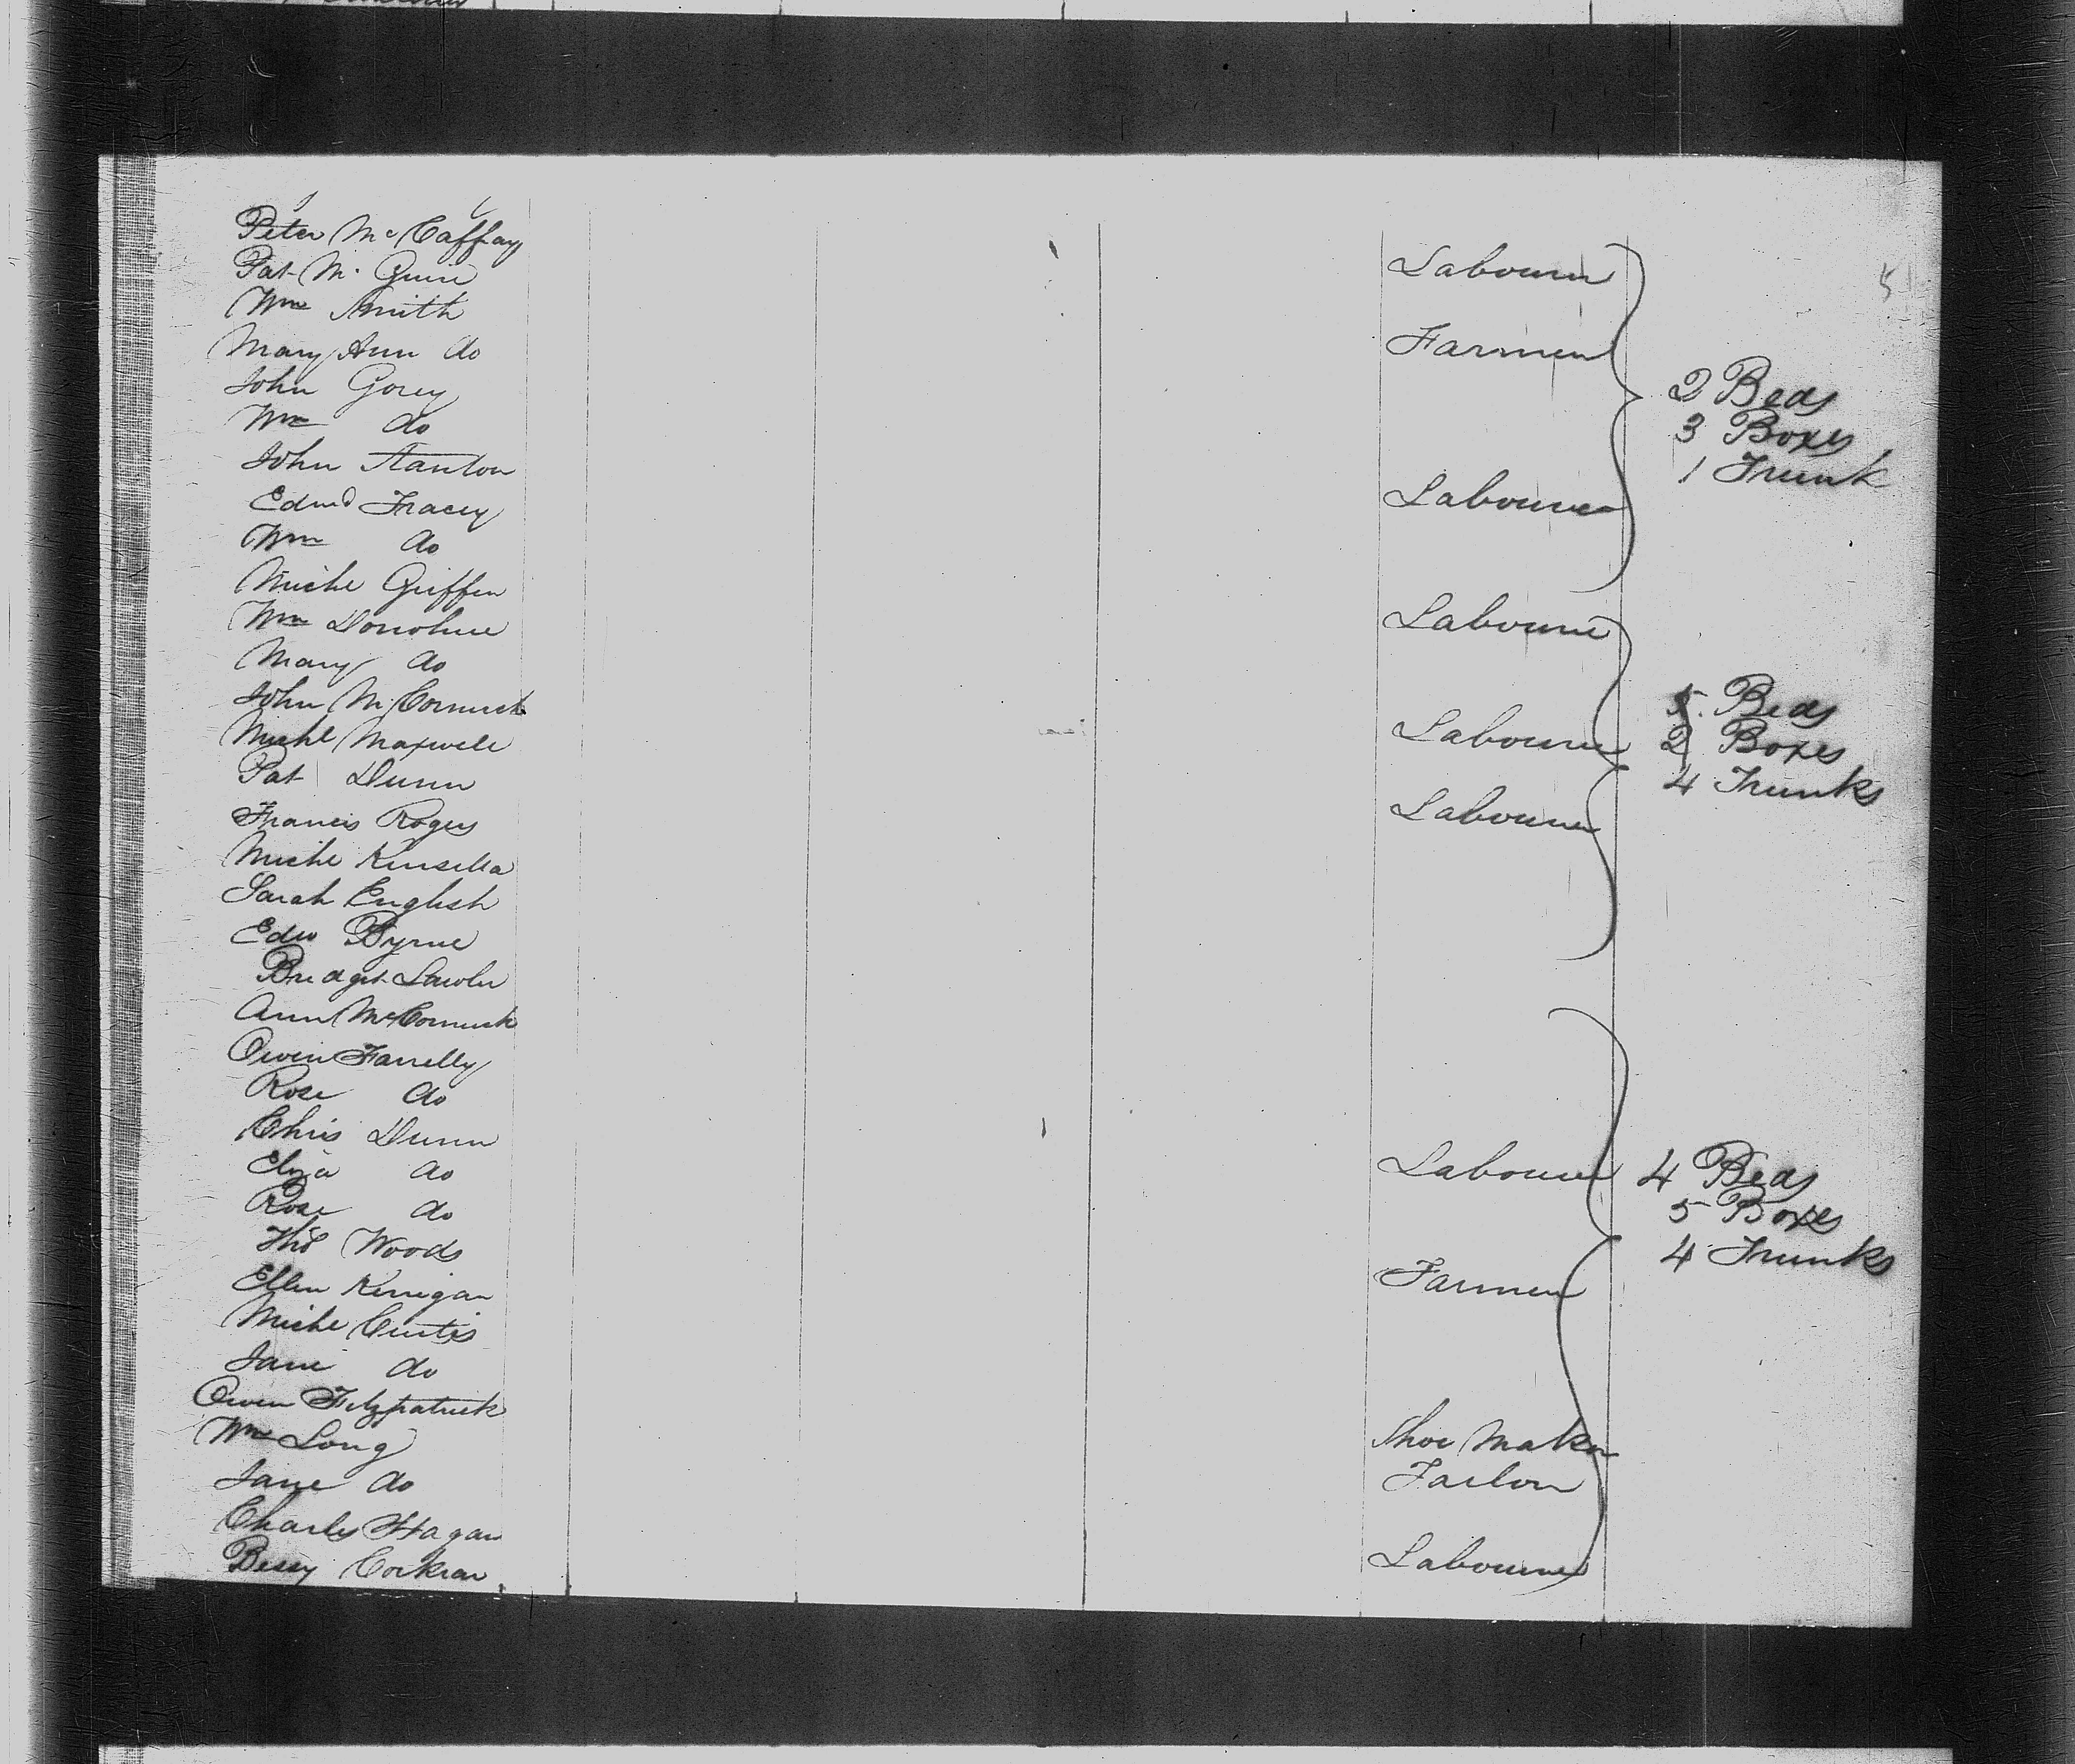 Peter Mc Caffray
Pat Mc Guire Labourer
5
Wm Smith
Mary Ann do Farmer
John Gorey 2 Beds
Wm do 3 Boxes
John Stanton 1 Trunk
Edmd Tracey Labourer
Wm do
Michl Griffen
Wm Donohue Labourer
Mary do
John McCormick 5 Beds
Michl Maxwell Labourer 2 Boxes
Pat Dunn 4 Trunks
Francis Rogers Labourer
Michl Kinsella
Sarah English
Edw Byrne
Bridget Lawler
Ann McCormick
Owen Farrelly
Rose do
Chris Dunn
Eliza do Labourer 4 Beds
Rose do 5 Boxes
Thos Woods 4 Trunks
Ellen Kernigan Farmer
Michl Curtis
Jane do
Owen Fitzpatrick
Wm Long Shoe Maker
Jane do Tailor
Charles Hagan
Bessy Corkran Labourer